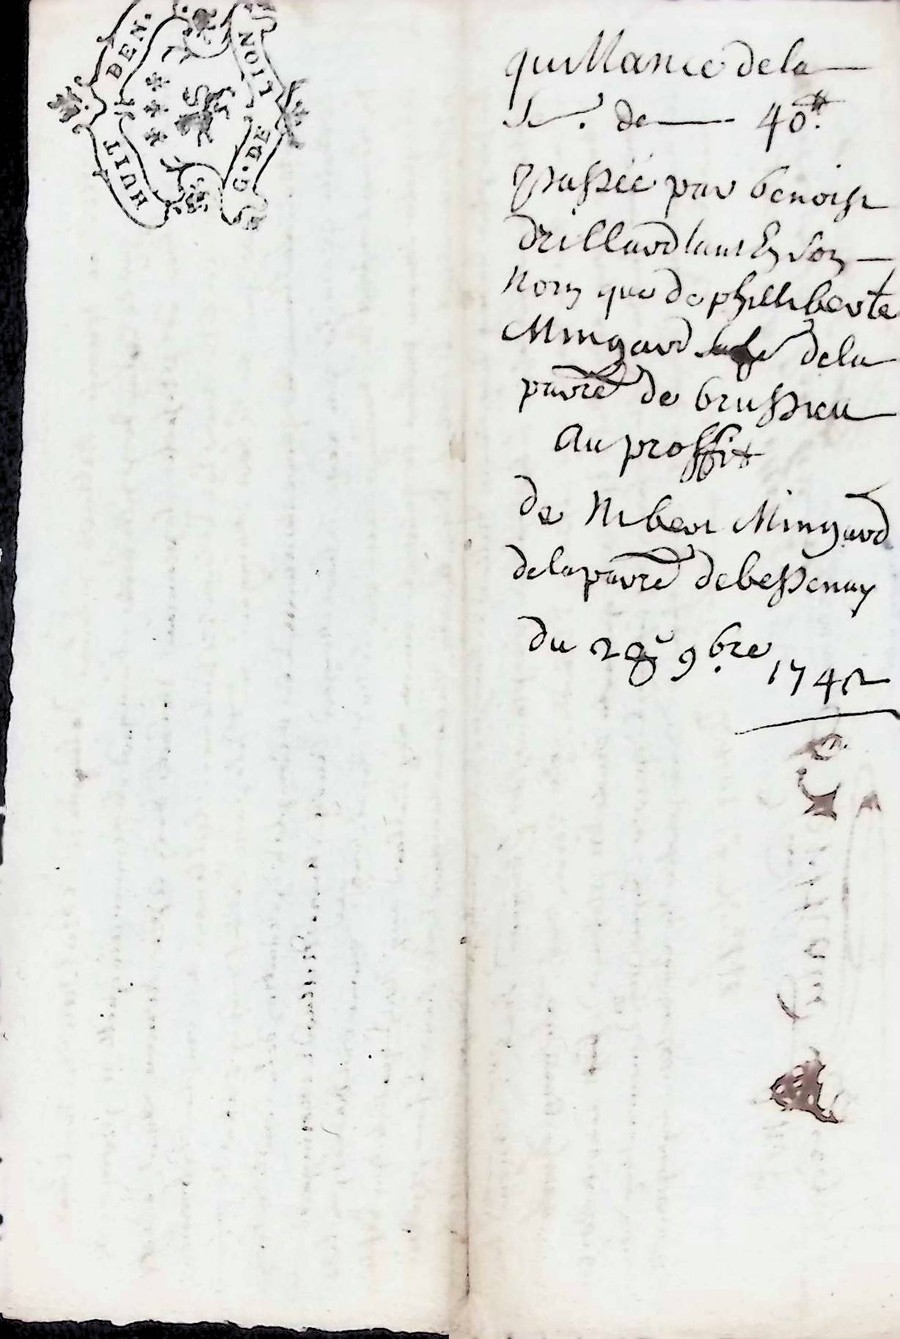 G. DE LION HUIT DEN.
quittance de la
S. de 40#
passée par benoist
drillard tant En son
Nom que de philliberte
Mingard sa fe de la
parre de brussieu
Au proffit
de Nibert Mingard
de la parre de bessenay
du 28e 9.bre 1742